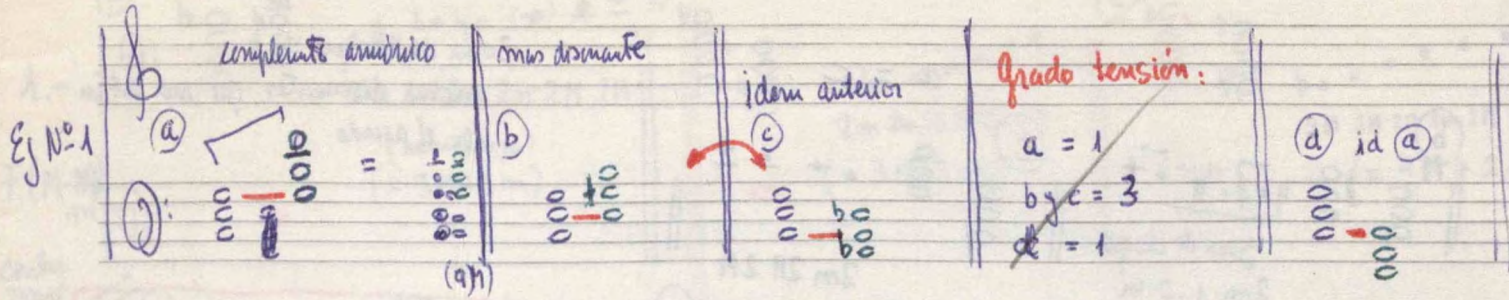 Ej Nº 1
a
complemento armónico
=
(9M)
b
mas disonante
c
idem anterior
Grado tensión:
a = 1
b y c = 3
d = 1
d id a